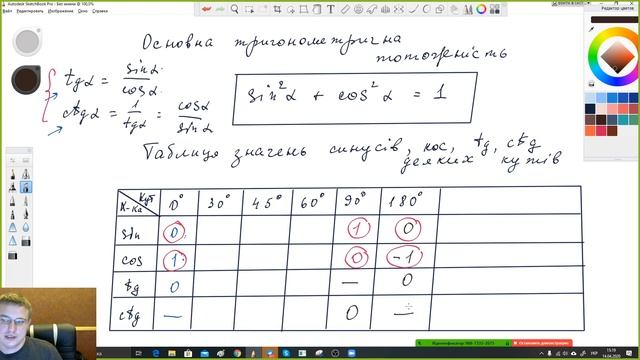 Autodesk SketchBook Pro - Без имени @ 100,0%
Основна тригонометрична
тотожність
tgα = sinα / cosα
ctgα = 1 / tgα = cosα / sinα
sin²α + cos²α = 1
Таблиця значень синусів, кос, tg, ctg
деяких кутів
Кут 0° 30° 45° 60° 90° 180°
Ф-ка
sin 0 1 0
cos 1 0 -1
tg 0 — 0
ctg — 0 —
Редактор цветов
Остановить демонстрацию
УКР
15:19
14.04.2020